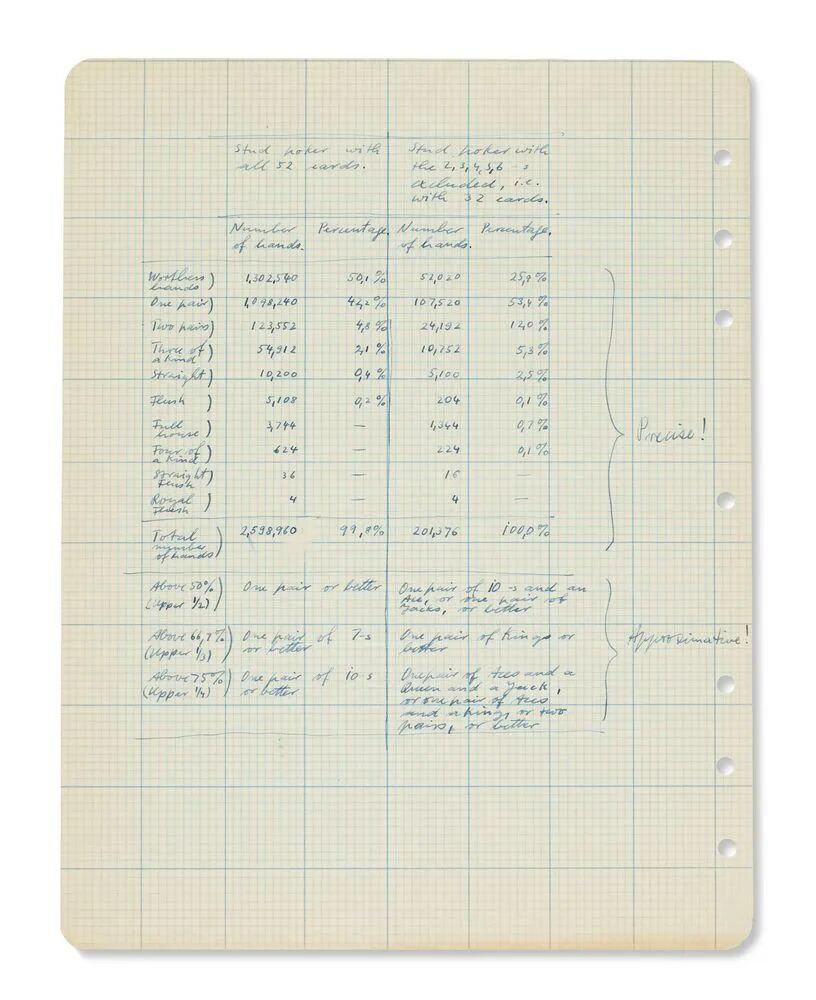 Stud poker with Stud poker with
all 52 cards. the 2, 3, 4, 5, 6 -s
excluded, i.e.
with 32 cards.
Number Percentage. Number Percentage.
of hands. of hands.
Worthless hands) 1,302,540 50,1 % 52,020 25,9 %
One pair) 1,098,240 42,2 % 107,520 53,4 %
Two pairs) 123,552 4,8 % 24,192 12,0 %
Three of a kind) 54,912 2,1 % 10,752 5,3 %
Straight) 10,200 0,4 % 5,100 2,5 %
Flush) 5,108 0,2 % 204 0,1 %
Full house) 3,744 — 1,344 0,7 %
Four of a kind) 624 — 224 0,1 %
Straight Flush) 36 — 16 —
Royal Flush) 4 — 4 —
Total number of hands) 2,598,960 99,8 % 201,376 100,0 %
Precise!
Above 50% One pair or better One pair of 10 -s and an
(Upper 1/2) Ace, or one pair of
Jacks, or better
Above 66,7%) One pair of 7-s One pair of Kings or
(Upper 1/3) or better better
Above 75% One pair of 10-s One pair of Aces and a
(Upper 1/4) or better Queen and a Jack,
or one pair of Aces
and a King, or two
pairs, or better
Approximative!